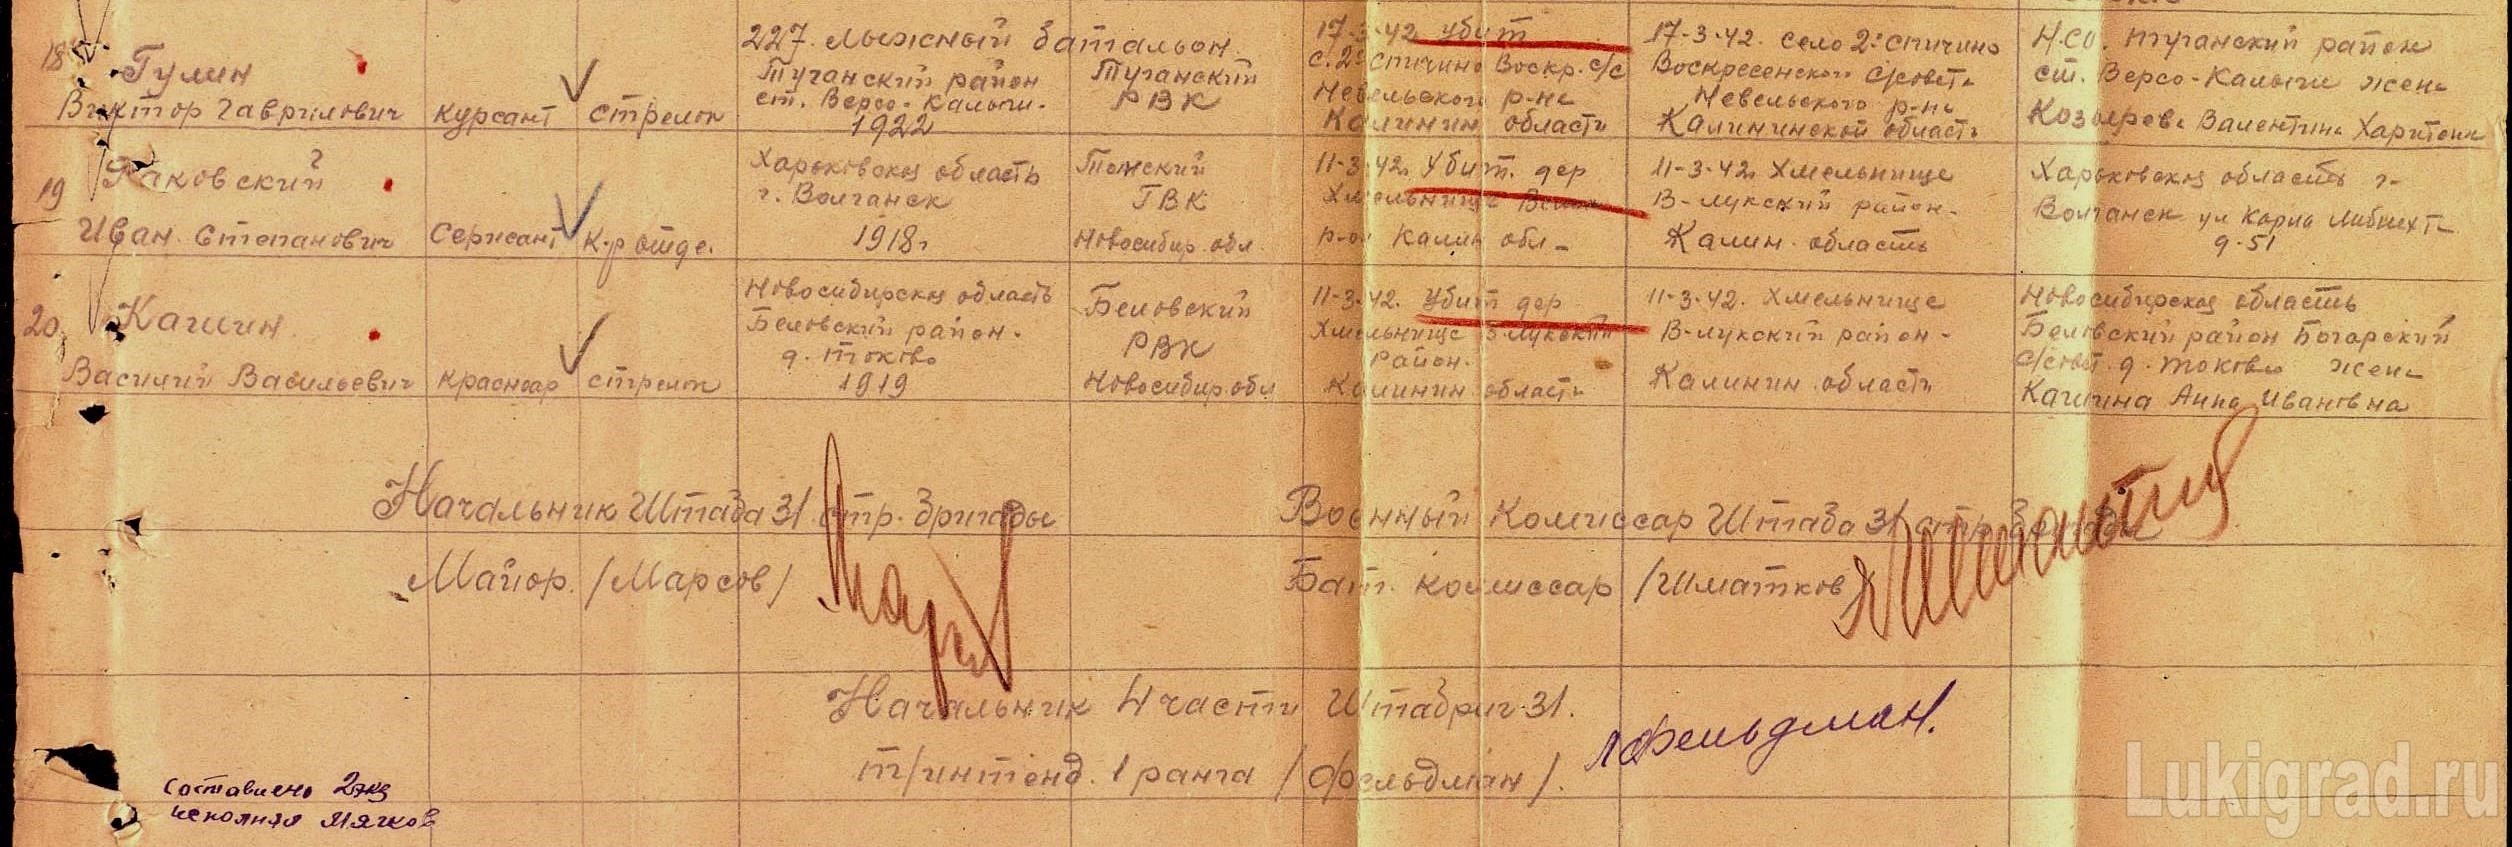 227. лыжный батальон.
18
Гулин
Виктор Гаврилович
курсант
стрелок
Туганский район
ст. Версо-Калыги.
1922
Туганский
РВК
17-3-42 Убит
с. 2е Спичино Воскр. с/с
Невельского р-на
Калинин области
17-3-42. село 2е Спичино
Воскресенского с/совета
Невельского р-на
Калининской области
Н.СО. Туганский район
ст. Версо-Калыги жена
Козырева Валентина
19
Раковский
Иван Степанович
Сержант
К-р отде.
Харьковская область
г. Волчанск
1918г
Томский
ГВК
Новосибир. обл.
11-3-42г Убит. дер
Хмельнище
р-он Калин обл-
11-3-42г Хмельнище
В-лукский район-
Калин. область
Харьковская область г-
Волчанск ул Карла Либкнехта
д-51
20
Кашин
Василий Васильевич
красноар
стрелок
Новосибирская область
Беловский район.
д. Токово
1919
Беловский
РВК
Новосибир. обл
11-3-42. Убит дер
Хмельнище В-лукский
район.
Калинин области
11-3-42. Хмельнище
В-лукский район-
Калинин. области
Новосибирская область
Беловский район
с/совет. д. Токово жена
Кашина Анна Ивановна
Начальник Штаба 31 стр. бригады
Военный Комиссар Штаба 31 стр. бригады
Майор. /Марсов/
Бат. комиссар /Шматков/
Начальник 4 части Штабриг 31.
т/интенд. 1 ранга /Фельдман/.
Фельдман.
Составлено 2 экз
исполнял Мячков
Lukigrad.ru